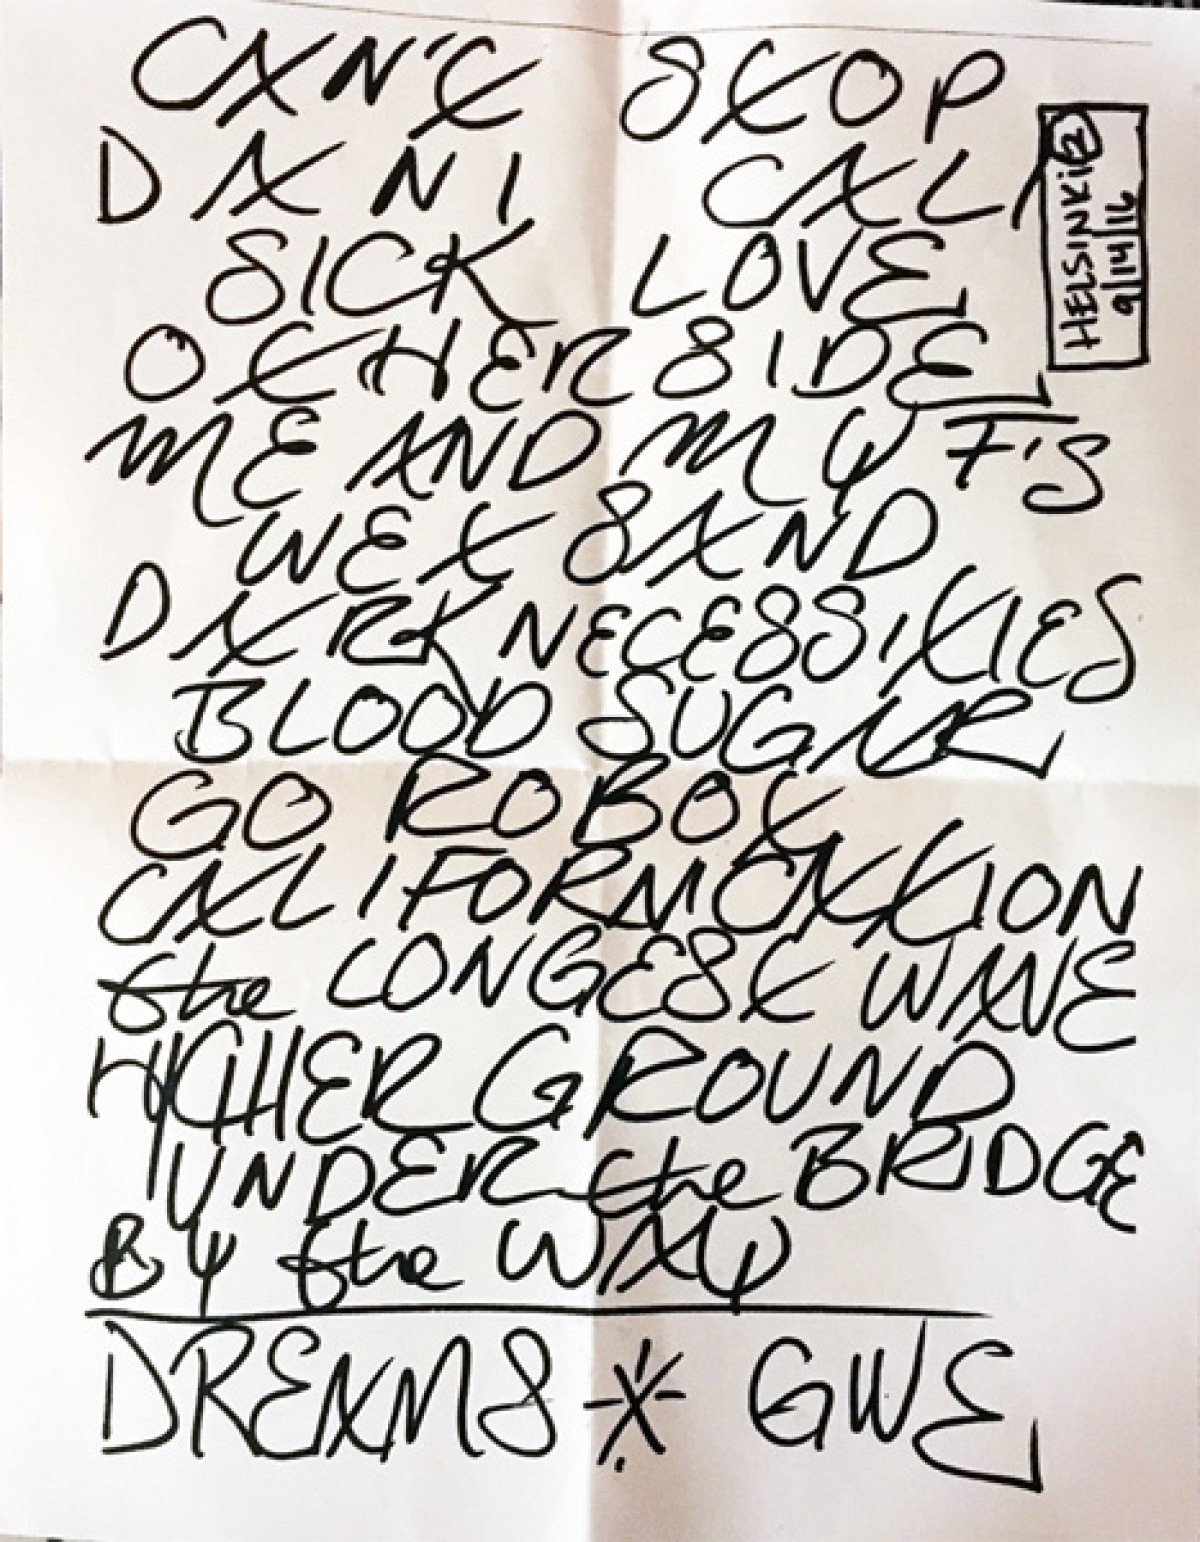 CAN'T STOP
DANI CALI
SICK LOVE
OTHERSIDE
ME AND MY F'S
WET SAND
DARK NECESSITIES
BLOOD SUGAR
GO ROBOT
CALIFORNICATION
the LONGEST WAVE
HIGHER GROUND
UNDER the BRIDGE
BY the WAY
DREAMS * GWE
HELSINKi 2
9/14/16